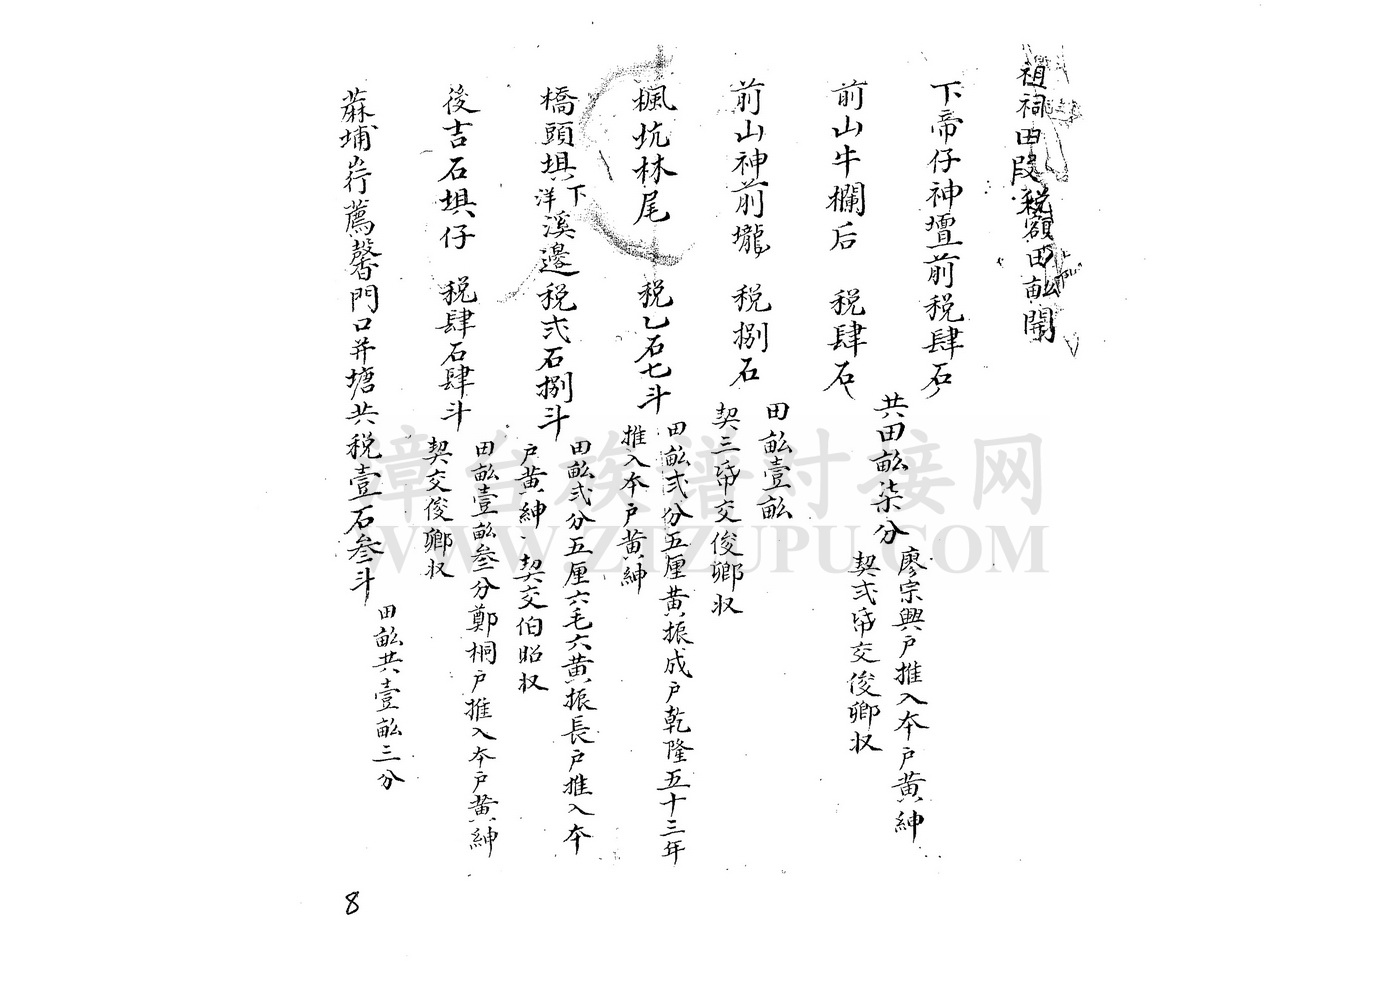 祖祠田段税額田畝開
下帝仔神壇前税肆石
前山牛欄后　税肆石
共田畝柒分
廖宗興户推入本户黄紳
契弍帋交俊卿収
前山神前壠　税捌石
田畝壹畝
契三帋交俊卿収
楓坑林尾　税乙石七斗
田畝弍分五厘黄振成户乾隆五十三年
推入本户黄紳
橋頭埧下洋溪邊税弍石捌斗
田畝弍分五厘六毛六黄振長户推入本
户黄紳、契交伯昭収
後吉石埧仔　税肆石肆斗
田畝壹畝叁分鄭桐户推入本户黄紳
契交俊卿収
蔴埔岽薦馨門口并塘共税壹石叁斗
田畝共壹畝三分
8
漳台族谱对接网
WWW.ZTZUPU.COM